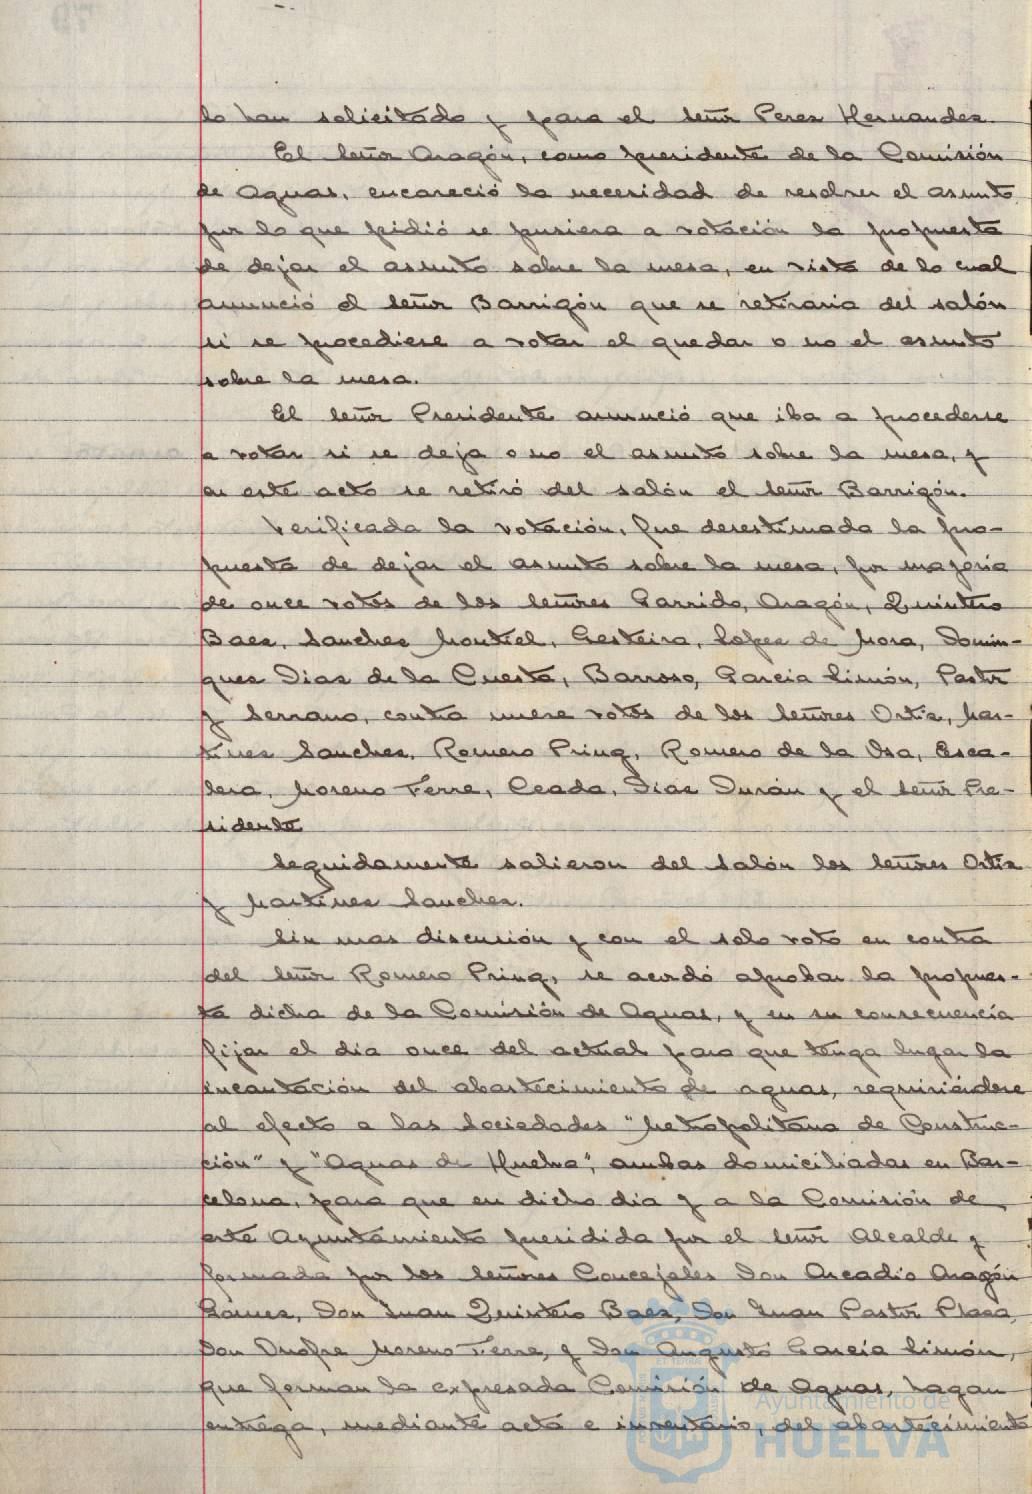 lo han solicitado y para el señor Perez Hernandez.
El señor Aragón, como presidente de la Comisión
de Aguas, encareció la necesidad de resolver el asunto
por lo que pidió se pusiera a votación la propuesta
de dejar el asunto sobre la mesa, en vista de lo cual
anunció el señor Barrigón que se retiraria del salón
si se procediese a votar el quedar o no el asunto
sobre la mesa.
El señor Presidente anunció que iba a procederse
a votar si se deja o no el asunto sobre la mesa, y
en este acto se retiró del salón el señor Barrigón.
Verificada la votación, fue desestimada la pro-
puesta de dejar el asunto sobre la mesa, por mayoria
de once votos de los señores Garrido, Aragón, Quintero
Baez, Sanchez Montiel, Gesteira, Lopez de Mora, Domin-
guez Diaz de la Cuesta, Barroso, Garcia Limón, Pastor
y Serrano, contra nueve votos de los señores Ortiz, Mar-
tinez Sanchez, Romero Pring, Romero de la Osa, Esca-
lera, Moreno Ferre, Ceada, Diaz Durán y el señor Pre-
sidente
Seguidamente salieron del salón los señores Ortiz
y Martinez Sanchez.
Sin mas discusión y con el solo voto en contra
del señor Romero Pring, se acordó aprobar la propues-
ta dicha de la Comisión de Aguas, y en su consecuencia
fijar el dia once del actual para que tenga lugar la
incautación del abastecimiento de aguas, requiriéndose
al efecto a las Sociedades "Metropolitana de Construc-
ción" y "Aguas de Huelva", ambas domiciliadas en Bar-
celona, para que en dicho dia y a la Comisión de
este Ayuntamiento presidida por el señor Alcalde y
formada por los señores Concejales Don Arcadio Aragón
Gómez, Don Juan Quintero Baez, Don Juan Pastor Plaza,
Don Onofre Moreno Ferre, y Don Augusto Garcia Limón,
que forman la expresada Comisión de Aguas, hagan
entrega, mediante acta e inventario, del abastecimiento
Ayuntamiento de
HUELVA